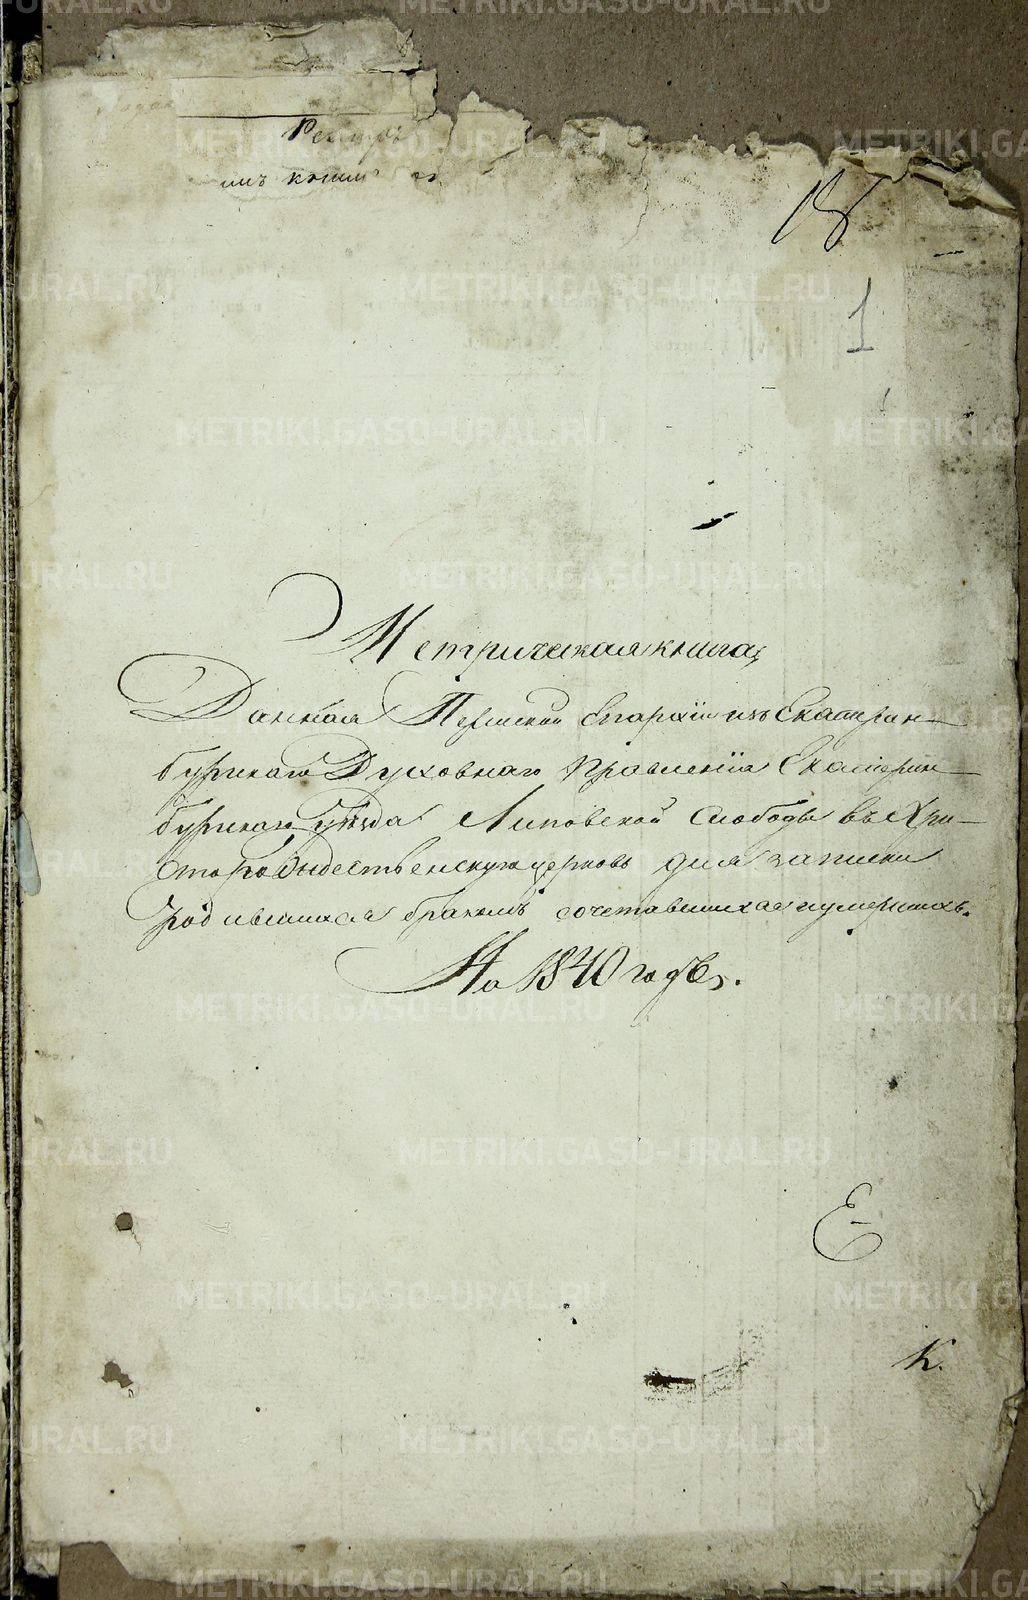 имъ книгъ
1
Метрическая книга,
Данная Пермской Епархіи изъ Екатерин-
бургскаго Духовнаго Правленія Екатерин-
бургскаго уѣзда Липовской Слободы въ Хри-
сторождественскую церковь для записки
родившихся бракомъ сочетавшихся и умершихъ.
На 1840 годъ.
Е
К.
METRIKI.GASO-URAL.RU